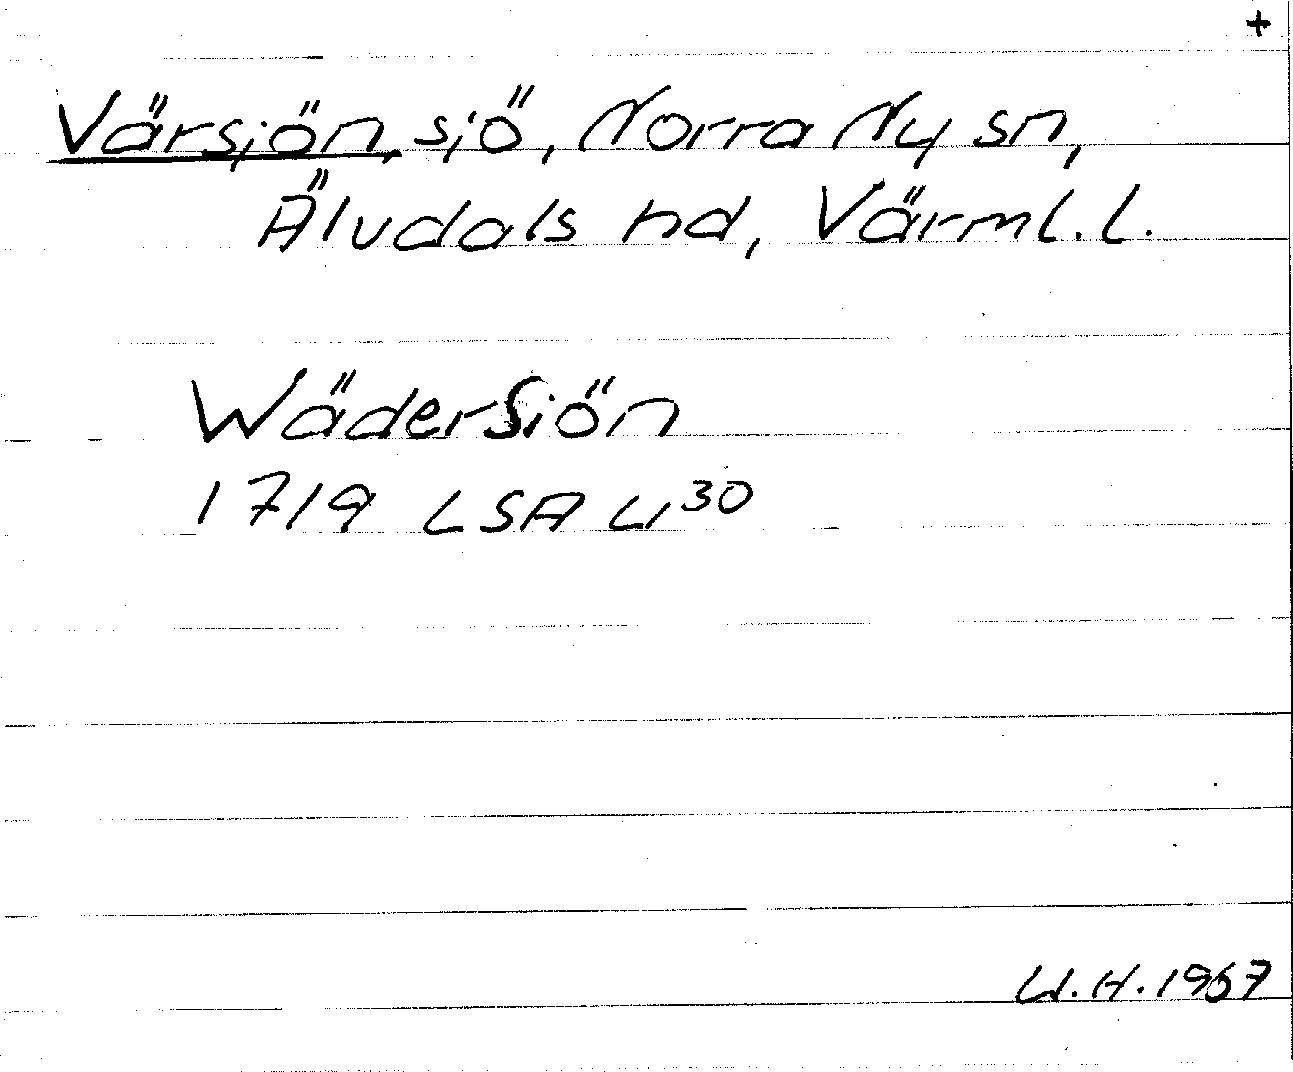 +
Värsjön, sjö, Norra Ny sn,
Älvdals hd, Värml. l.
Wädersiön
1719 LSA U³⁰
U.H. 1967